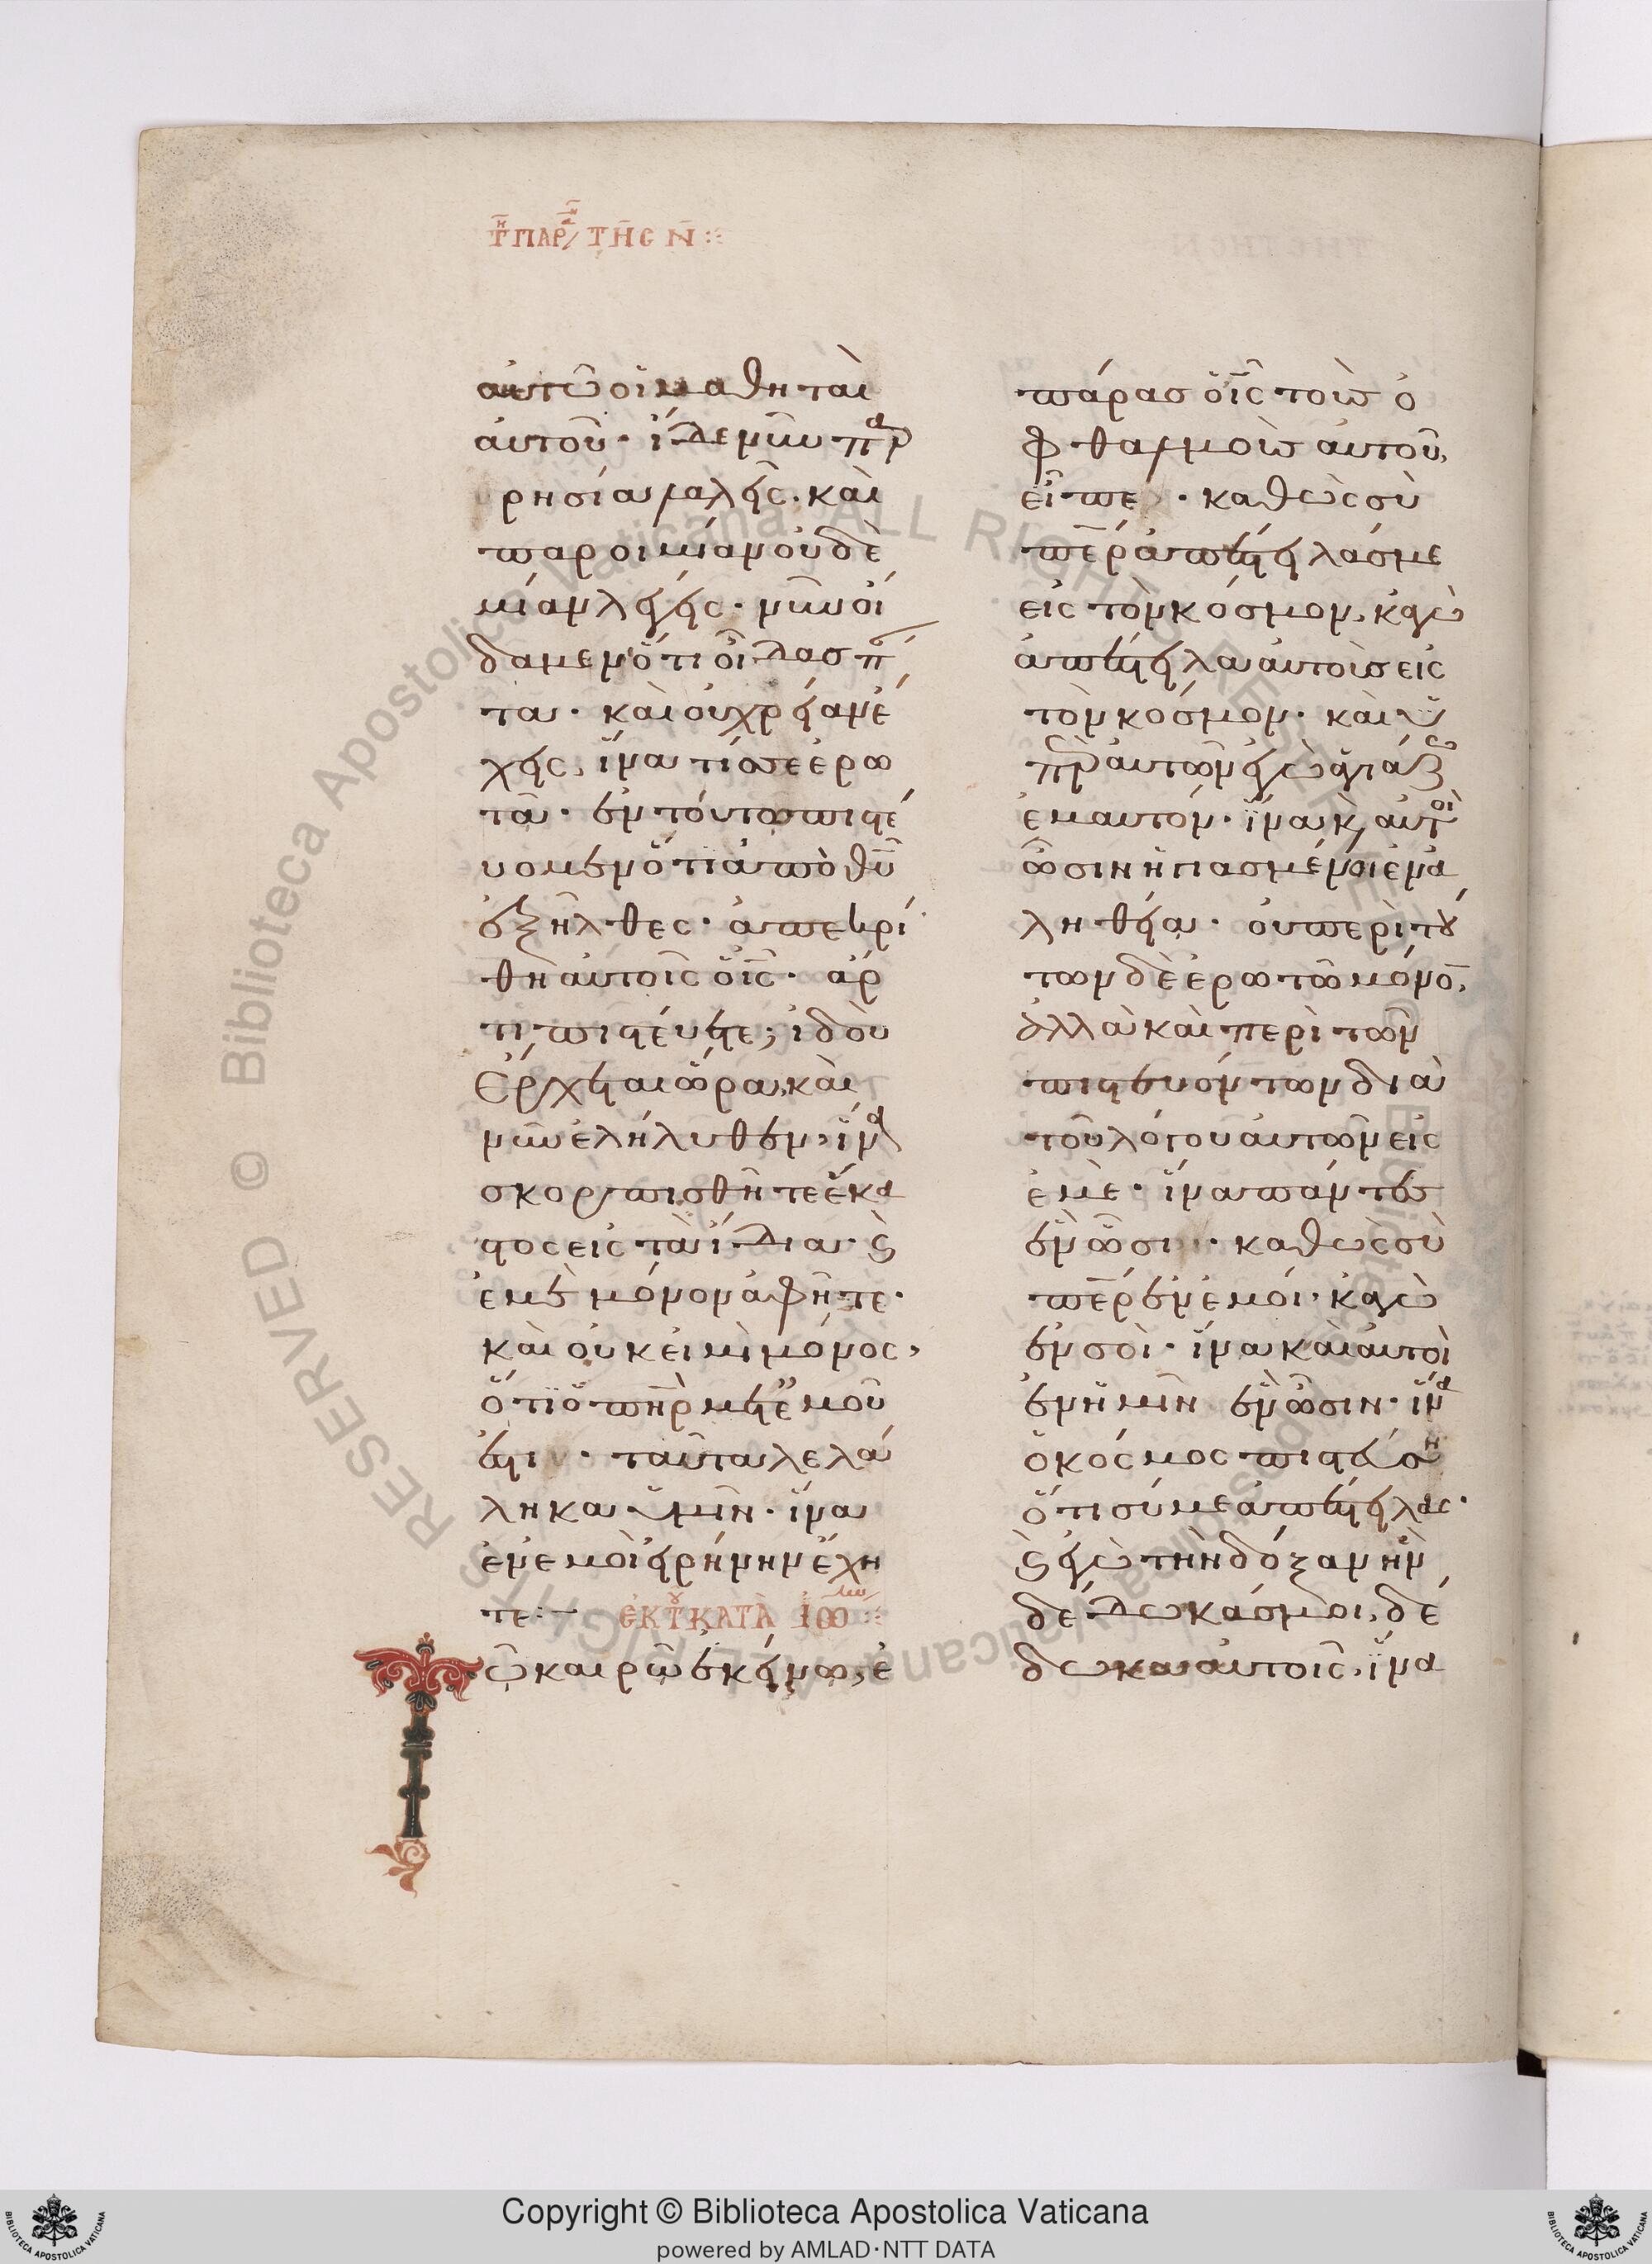 τῇ παρ τῆς Ν
αυτῶ οἱ μαθηταὶ
αὐτοῦ· ἴδε νῦν παρ
ρησία λαλεῖς· καὶ
παροιμίαν οὐδὲ
μίαν λέγεις· νῦν οἴ
δαμεν ὅτι οἶδας πά
τα· καὶ οὐ χρείαν ἔ
χεις, ἵνα τίς σε ἐρω
τᾶ· ἐν τούτω πιστέ
υομεν ὅτι ἀπὸ θυ
ἐξῆλθες· ἀπεκρί
θη αὐτοῖς ὁ ις· ἄρ
τι πιστεύετε; ἰδοὺ
ἔρχεται ὥρα, καὶ
νῦν ἐλήλυθεν, ἵνα
σκορπισθῆτε ἕκα
στος εἰς τὰ ἴδια· καὶ
ἐμὲ μόνον ἀφῆτε·
καὶ οὐκ εἰμὶ μόνος,
ὅτι ὁ πηρ μετ' ἐμοῦ
ἐστι · ταῦτα λελά
ληκα ὑμῖν· ἵνα
ἐν ἐμοὶ εἰρήνην ἔχη
τε:– ἐκ τοῦ κατὰ Ἰω
Τῶ καιρῶ ἐκείνω, ἐ
πάρας ὁ ις τοὺς ὀ
φθαλμοὺς αὐτοῦ,
εἶπε · καθὼς σὺ
περ ἀπέστειλάς με
εἰς τὸν κόσμον, κἀγὼ
ἀπέστειλα αὐτοὺς εἰς
τὸν κόσμον· καὶ ὑ
πὲρ αὐτῶν ἐγὼ ἁγιάζω
ἐμαυτόν· ἵνα κ αὐτοὶ
ὦσιν ἡγιασμένοι ἐν ἀ
ληθεία· οὐ περὶ τού
των δὲ ἐρωτῶ μόνον,
ἀλλὰ καὶ περὶ τῶν
πιστευόντων διὰ
τοῦ λόγου αὐτῶν εἰς
ἐμέ· ἵνα πάντες
ἓν ὦσι · καθὼς σὺ
περ ἐν ἐμοί· κἀγὼ
ἐν σοὶ· ἵνα καὶ αὐτοὶ
ἐν ἡμῖν ἓν ὦσιν· ἵνα
ὁ κόσμος πιστεύση
ὅτι σύ με ἀπέστειλας·
καὶ ἐγὼ τὴν δόξαν ἣν
δέδωκάς μοι, δέ
δωκα αὐτοῖς, ἵνα
Copyright © Biblioteca Apostolica Vaticana
powered by AMLAD·NTT DATA